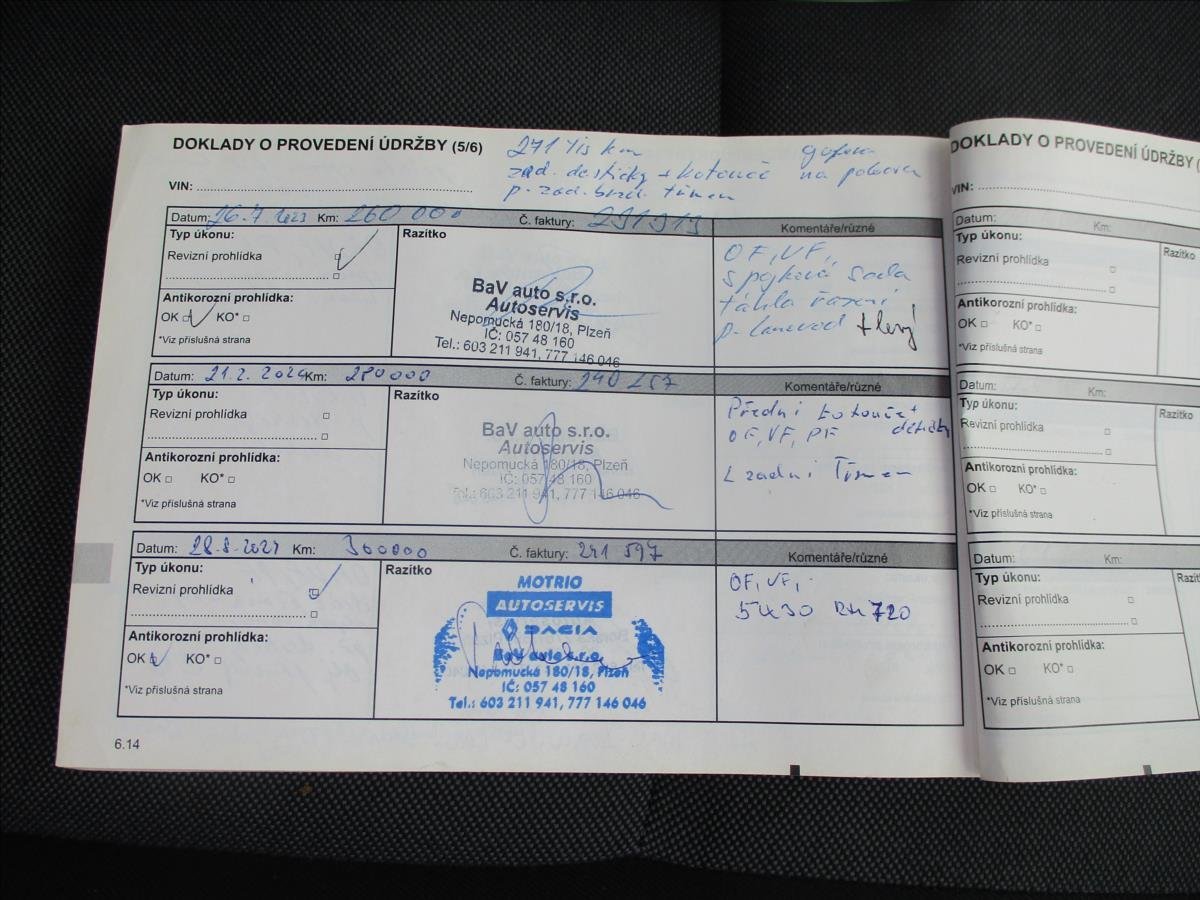 DOKLADY O PROVEDENÍ ÚDRŽBY (5/6)
271 tis km
zad. destičky + kotouče na
p. zad. brzd. třmen
VIN:
Datum: 26.7 2023 Km: 260 000 Č. faktury: 231313 Komentáře/různé
Typ úkonu:
Revizní prohlídka
Antikorozní prohlídka:
OK KO*
*Viz příslušná strana
Razítko
BaV auto s.r.o.
Autoservis
Nepomucká 180/18, Plzeň
IČ: 057 48 160
Tel.: 603 211 941, 777 146 046
OF, VF,
spojková sada
táhla řazení
p. + levý
Datum: 21.2. 2024 Km: 280000 Č. faktury: 240 257 Komentáře/různé
Typ úkonu:
Revizní prohlídka
Antikorozní prohlídka:
OK KO*
*Viz příslušná strana
Razítko
BaV auto s.r.o.
Autoservis
Nepomucká 180/18, Plzeň
IČ: 057 48 160
Tel.: 603 211 941, 777 146 046
Přední kotouče +
OF, VF, PF
L zadní Třmen
Datum: 28.8.2024 Km: 300000 Č. faktury: 241 597 Komentáře/různé
Typ úkonu:
Revizní prohlídka
Antikorozní prohlídka:
OK KO*
*Viz příslušná strana
Razítko
MOTRIO
AUTOSERVIS
DACIA
BaV auto s.r.o.
Nepomucká 180/18, Plzeň
IČ: 057 48 160
Tel.: 603 211 941, 777 146 046
OF, VF,
5W30 RN720
6.14
DOKLADY O PROVEDENÍ ÚDRŽBY (
VIN:
Datum: Km:
Typ úkonu:
Revizní prohlídka
Antikorozní prohlídka:
OK KO*
*Viz příslušná strana
Razítko
Datum: Km:
Typ úkonu:
Revizní prohlídka
Antikorozní prohlídka:
OK KO*
*Viz příslušná strana
Razítko
Datum: Km:
Typ úkonu:
Revizní prohlídka
Antikorozní prohlídka:
OK KO*
*Viz příslušná strana